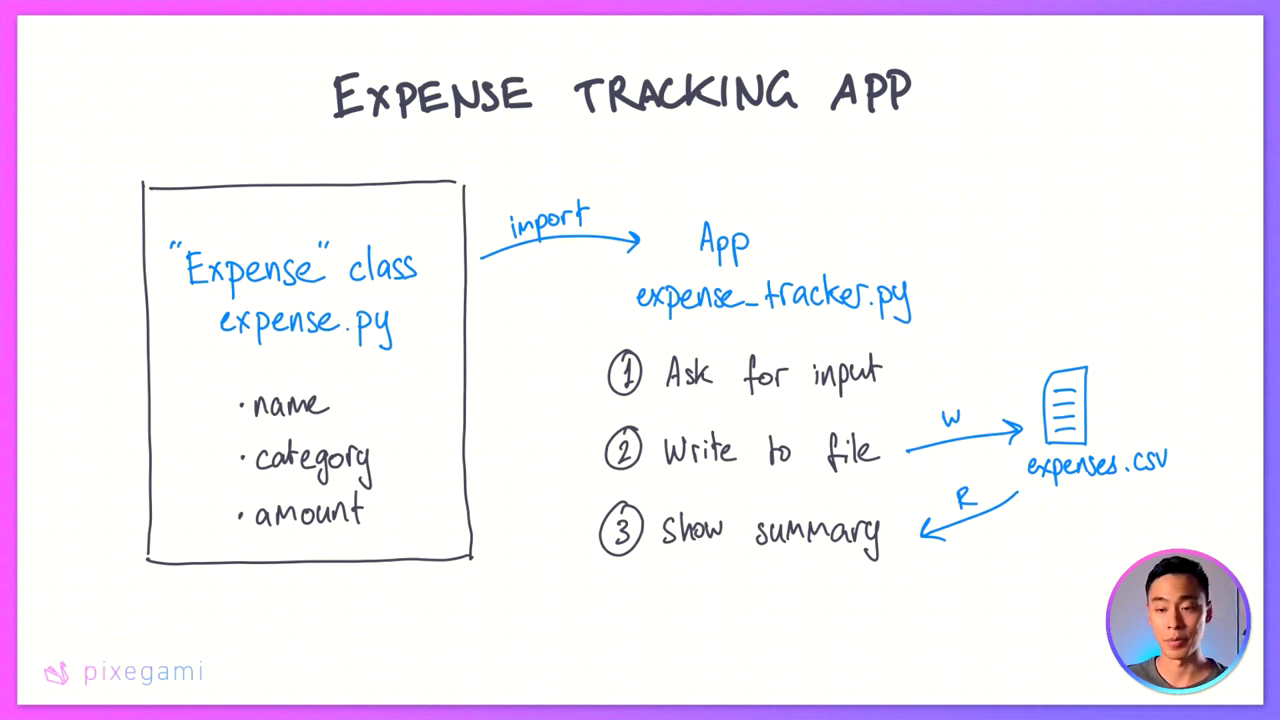 EXPENSE TRACKING APP
"Expense" class
expense.py
· name
· category
· amount
import
App
expense_tracker.py
1 Ask for input
2 Write to file
3 Show summary
W
expenses.csv
R
pixegami